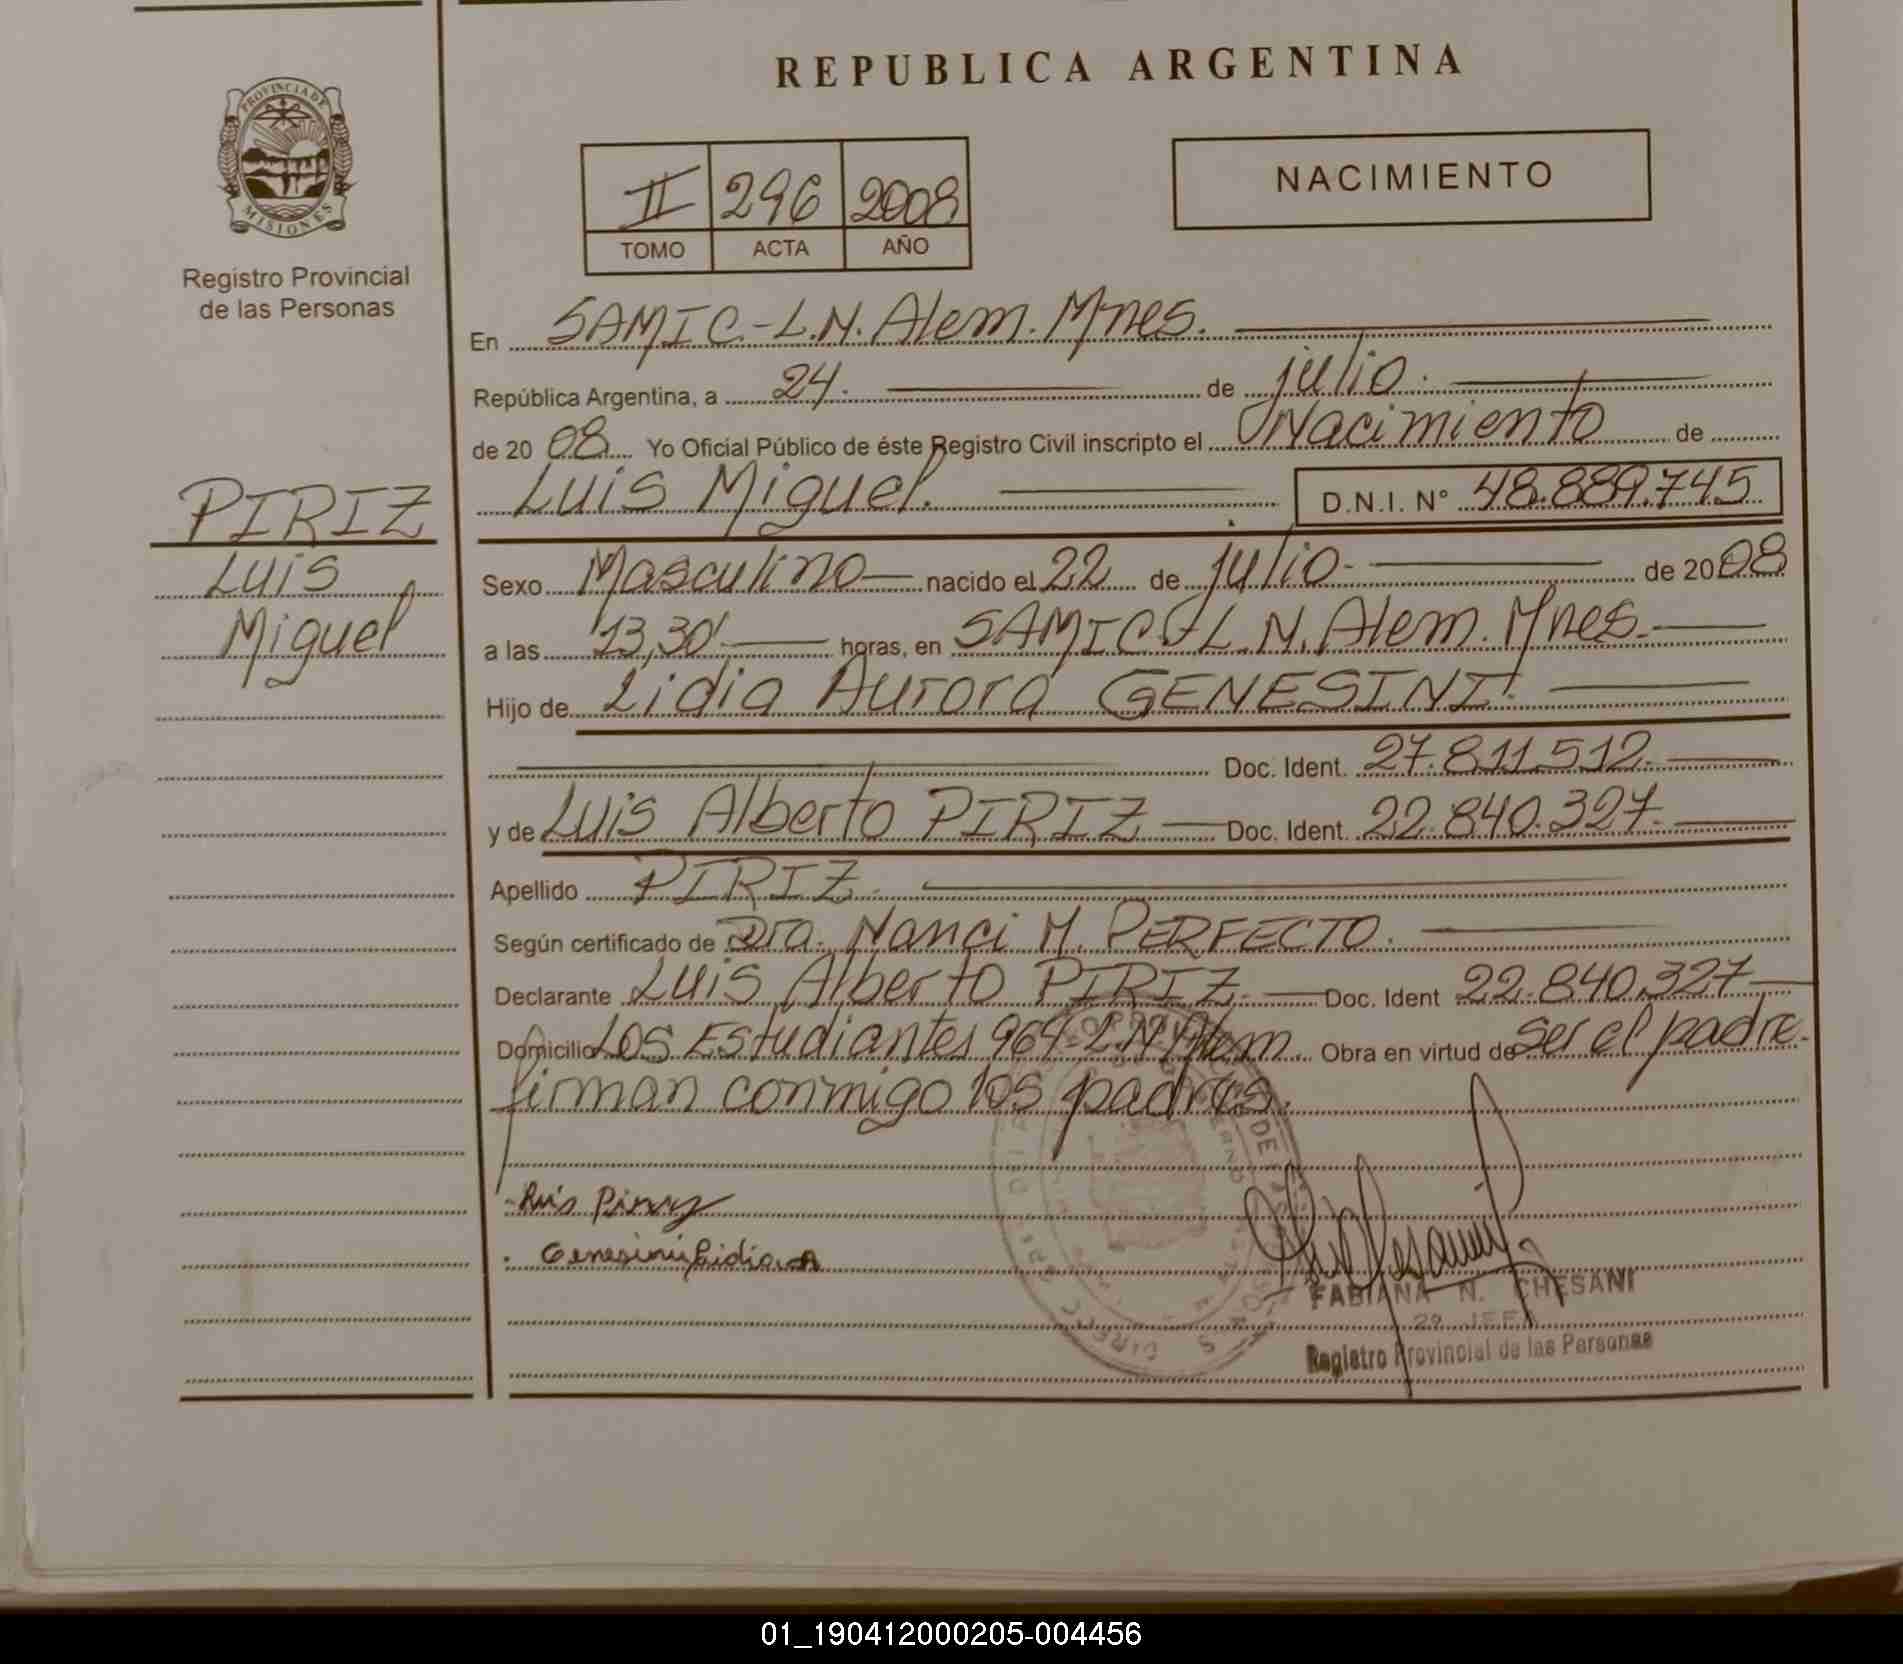 REPUBLICA ARGENTINA
PROVINCIA DE
MISIONES
Registro Provincial
de las Personas
II 296 2008
TOMO ACTA AÑO
NACIMIENTO
En SAMIC.-L.N. Alem. Mnes.
República Argentina, a 24. de julio.
de 20 08 Yo Oficial Público de éste Registro Civil inscripto el Nacimiento de
Luis Miguel. D.N.I. N° 48.889.745
PIRIZ
Luis
Miguel
Sexo Masculino nacido el 22 de julio. de 20 08
a las 13,30 horas, en SAMIC.-L.N. Alem. Mnes.
Hijo de Lidia Aurora GENESINI.
Doc. Ident. 27.811.512.
y de Luis Alberto PIRIZ Doc. Ident. 22.840.327.
Apellido PIRIZ.
Según certificado de Dra. Nanci M. PERFECTO.
Declarante Luis Alberto PIRIZ. Doc. Ident 22.840.327
Domicilio Los Estudiantes 964-L.N. Alem. Obra en virtud de ser el padre.
firman conmigo los padres.
Luis Piriz
Genesini Lidia. A
FABIANA N. CHESANI
JEFE
Registro Provincial de las Personas
01_190412000205-004456